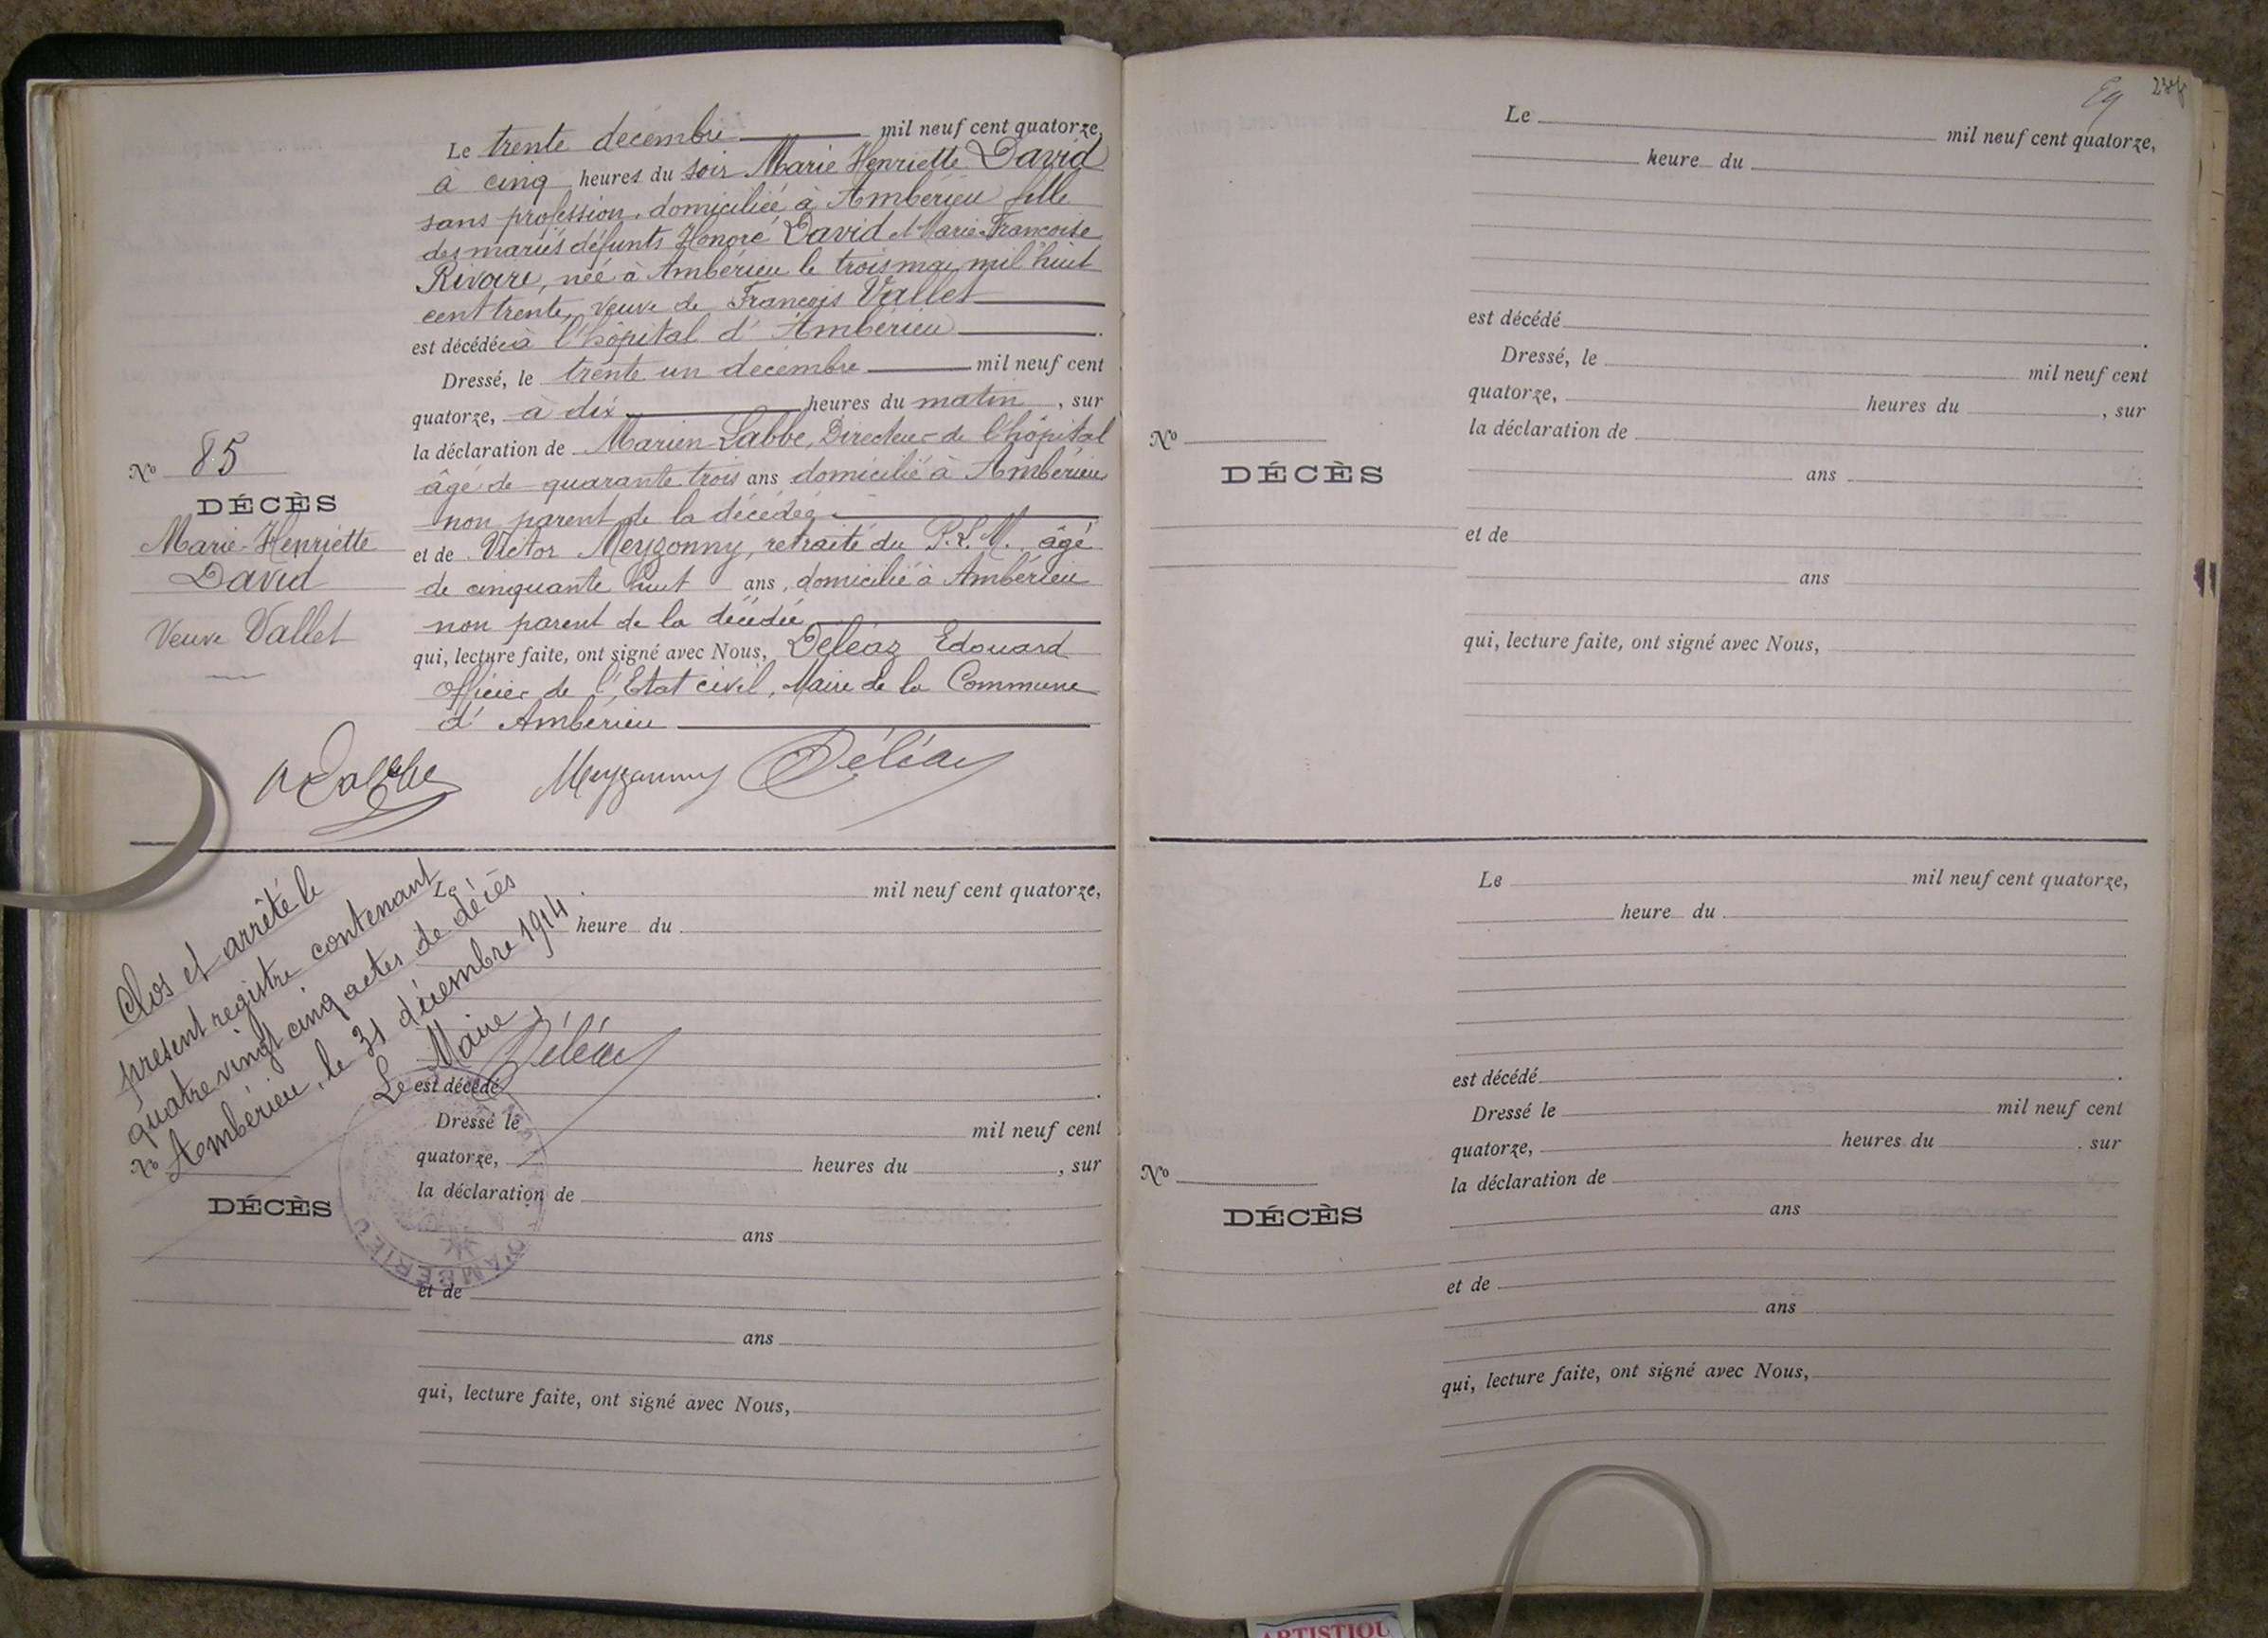 Le trente decembre mil neuf cent quatorze,
à cinq heures du soir Marie Henriette David
sans profession, domiciliée à Ambérieu fille
des mariés défunts Honoré David et Marie Francoise
Rivoire, née à Ambérieu le trois mai mil huit
cent trente, veuve de François Vallet
est décédée à l'hôpital d'Ambérieu.
Dressé, le trente un décembre mil neuf cent
quatorze, à dix heures du matin, sur
la déclaration de Marien Labbe, Directeur de l'hôpital
âgé de quarante trois ans domicilié à Ambérieu
non parent de la décédée
et de Victor Meyzonny, retraité du P.L.M. âgé
de cinquante huit ans, domicilié à Ambérieu
non parent de la décédée
qui, lecture faite, ont signé avec Nous, Déléaz Edouard
officier de l'Etat civil, Maire de la Commune
d'Ambérieu
No 85
DÉCÈS
Marie-Henriette
David
Veuve Vallet
Labbe Meyzonny Déléaz
Clos et arrêté le
présent registre contenant
quatre vingt cinq actes de décès
Ambérieu, le 31 décembre 1914.
Le Maire,
Déléaz
D'AMBÉRIEU
Le mil neuf cent quatorze,
heure du
est décédé
Dressé le mil neuf cent
quatorze, heures du , sur
la déclaration de
ans
et de
ans
qui, lecture faite, ont signé avec Nous,
No
DÉCÈS
Le mil neuf cent quatorze,
heure du
est décédé .
Dressé, le mil neuf cent
quatorze, heures du , sur
la déclaration de
ans
et de
ans
qui, lecture faite, ont signé avec Nous,
No
DÉCÈS
Le mil neuf cent quatorze,
heure du
est décédé .
Dressé le mil neuf cent
quatorze, heures du . sur
la déclaration de
ans
et de
ans
qui, lecture faite, ont signé avec Nous,
No
DÉCÈS